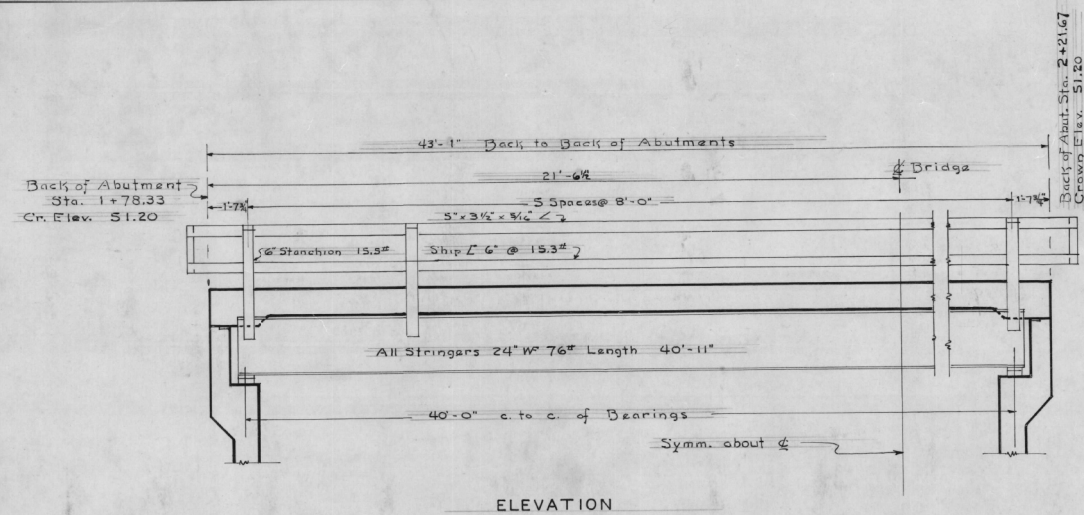 Back of Abut. Sta. 2+21.67
Crown Elev. 51.20
43'-1" Back to Back of Abutments
21'-6½
℄ Bridge
Back of Abutment
Sta. 1+78.33
Cr. Elev. 51.20
5 Spaces @ 8'-0"
5" x 3½" x 5/16" ∠
6" Stanchion 15.5#
Ship [ 6" @ 15.3#
All Stringers 24" WF 76# Length 40'-11"
40'-0" c. to c. of Bearings
Symm. about ℄
ELEVATION